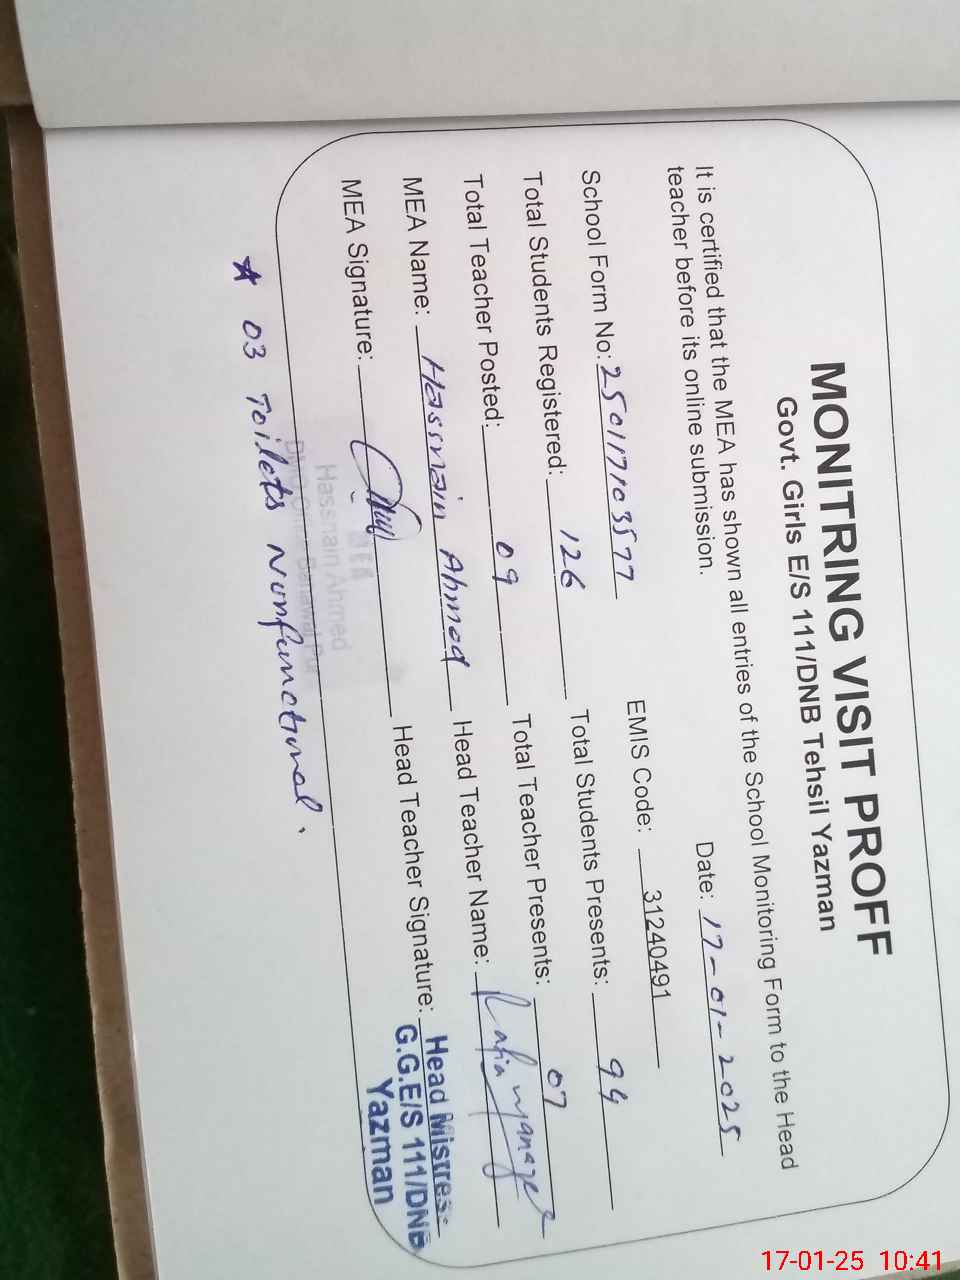 MONITRING VISIT PROFF
Govt. Girls E/S 111/DNB Tehsil Yazman
Date: 17-01-2025
It is certified that the MEA has shown all entries of the School Monitoring Form to the Head
teacher before its online submission.
School Form No: 250117103577 EMIS Code: 31240491
Total Students Registered: 126 Total Students Presents: 94
Total Teacher Posted: 09 Total Teacher Presents: 07
MEA Name: Hassnain Ahmad Head Teacher Name: Rafia
MEA Signature: Head Teacher Signature:
Head Mistress
G.G.E/S 111/DNB
Yazman
MEA
Hassnain Ahmed
* 03 Toilets Nonfunctional.
17-01-25 10:41